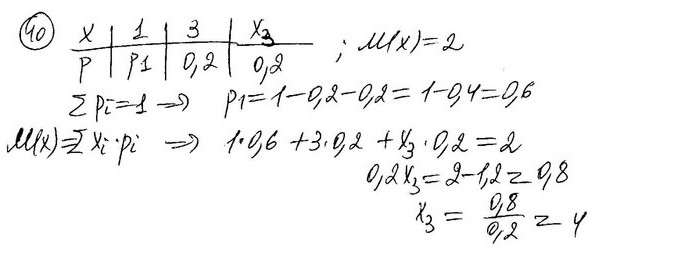 40 X | 1 | 3 | X₃ ; M(x)=2
P | P1 | 0,2 | 0,2
Σ Pi=1 => P1=1-0,2-0,2=1-0,4=0,6
M(x)=Σ Xi·pi => 1·0,6+3·0,2+X₃·0,2=2
0,2X₃=2-1,2=0,8
X₃=0,8/0,2=4